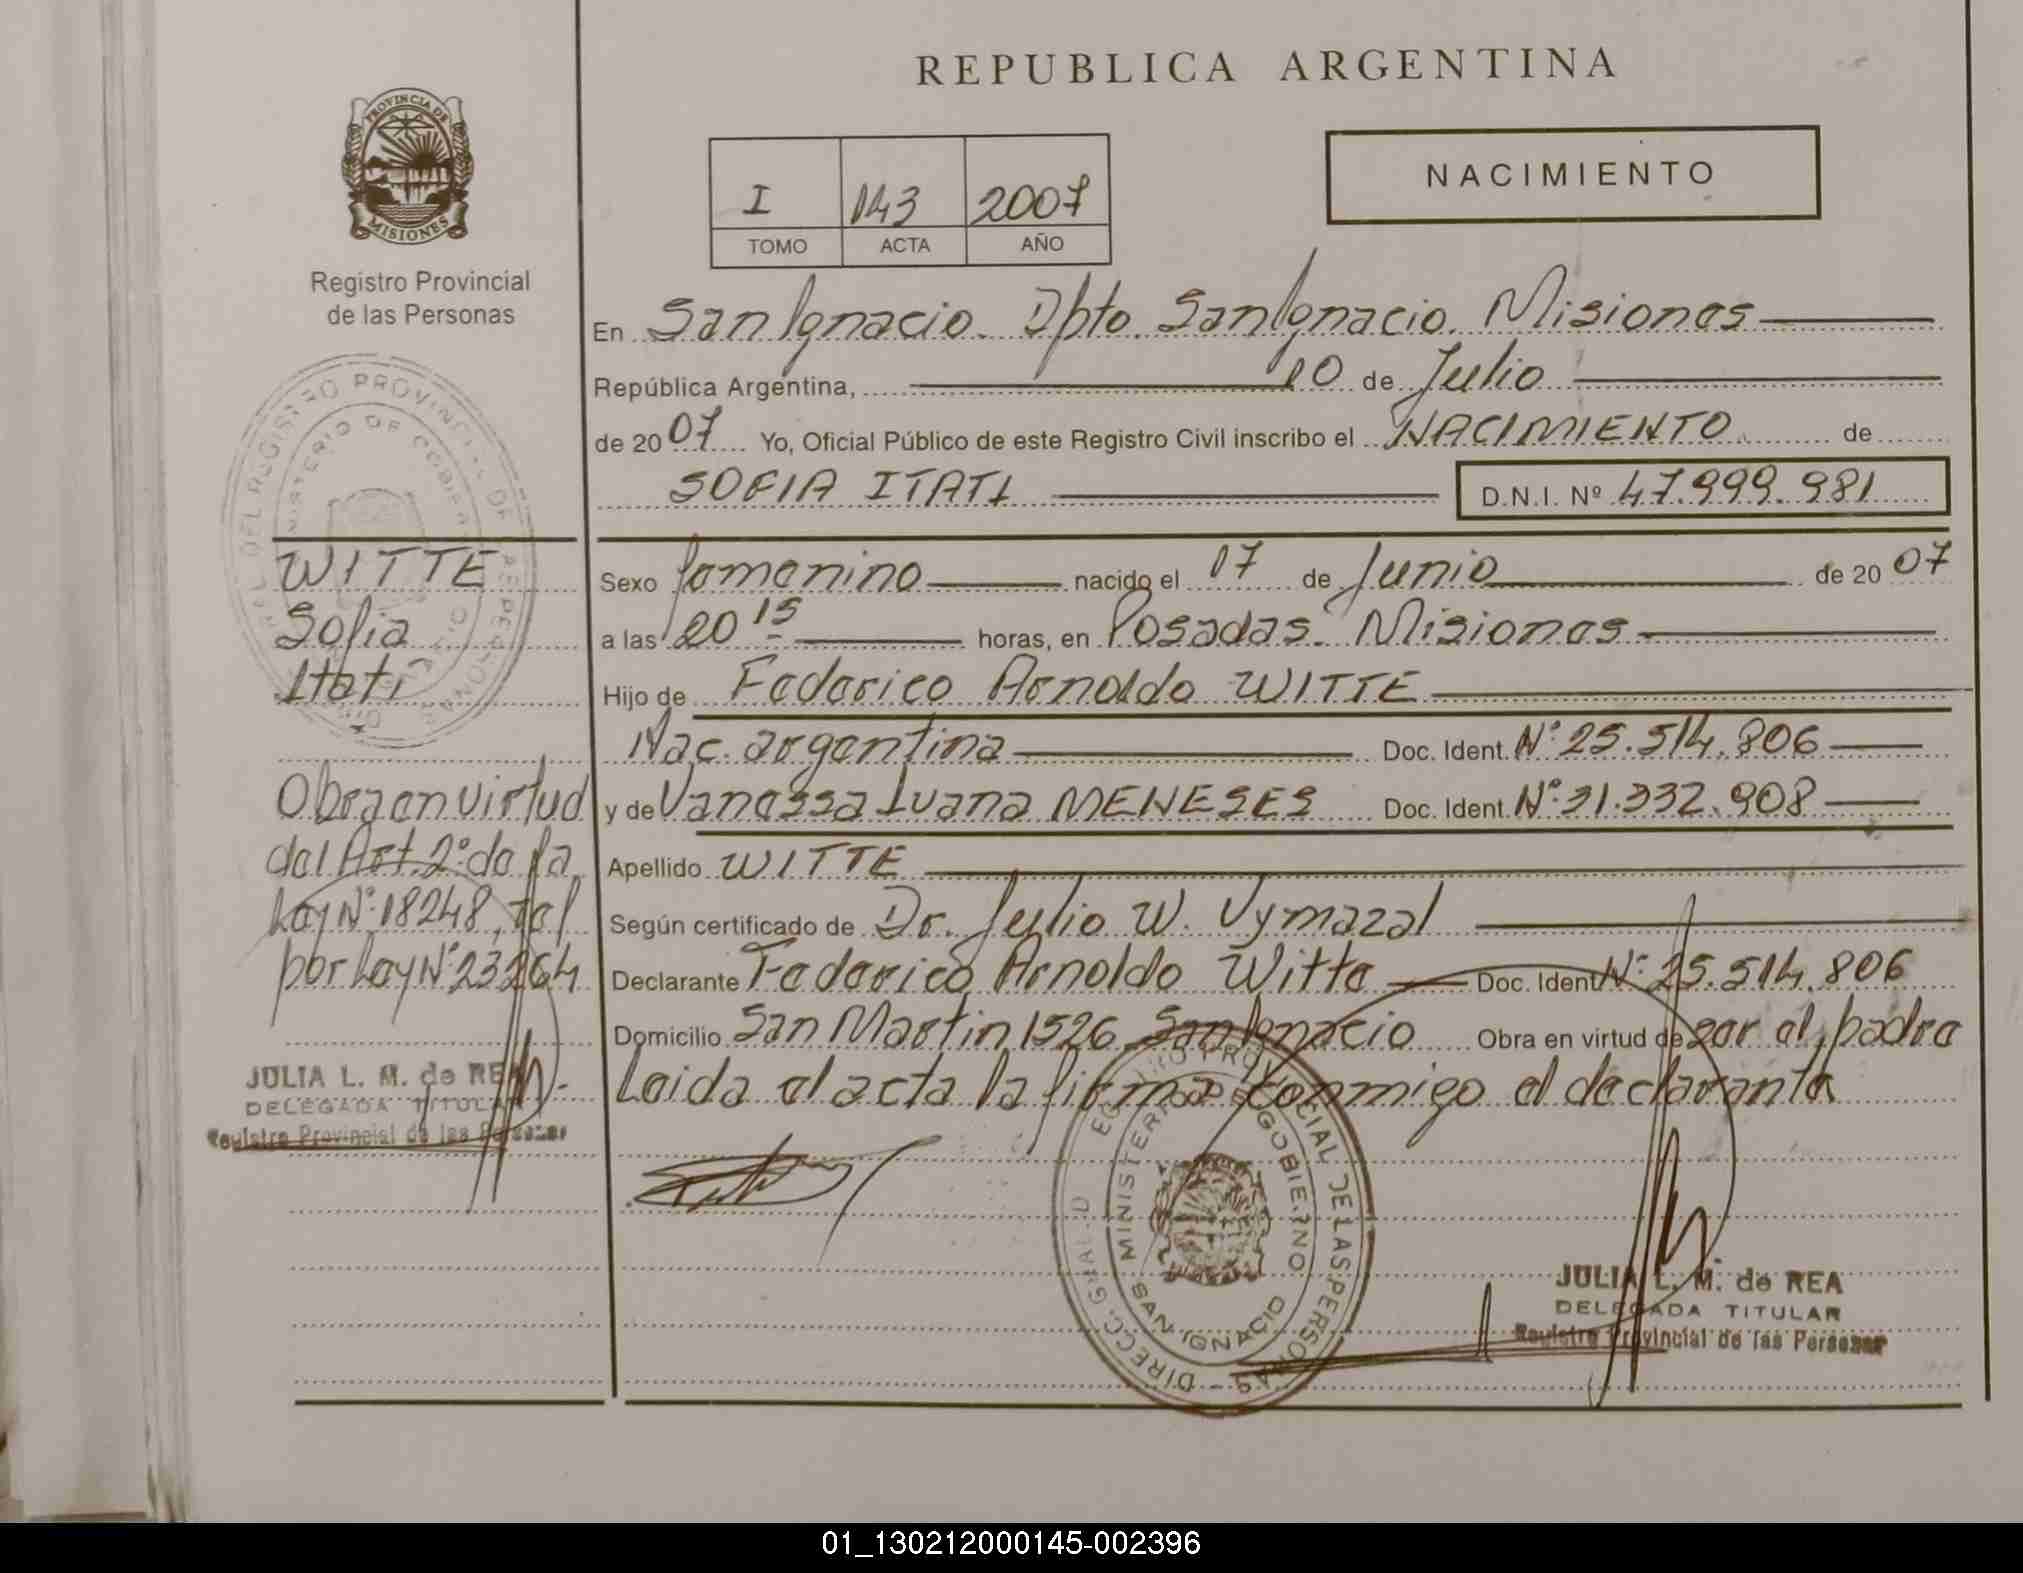 REPUBLICA ARGENTINA
PROVINCIA DE
MISIONES
Registro Provincial
de las Personas
I 143 2007
TOMO ACTA AÑO
NACIMIENTO
En San Ignacio. Dpto. San Ignacio. Misiones
República Argentina, 10 de Julio
de 2007 Yo, Oficial Público de este Registro Civil inscribo el NACIMIENTO de
SOFIA ITATI D.N.I. Nº 47.999.981
Sexo femenino nacido el 17 de Junio de 2007
a las 20 15 horas, en Posadas. Misiones
Hijo de Federico Arnoldo WITTE
Nac. argentina Doc. Ident. Nº 25.514.806
y de Vanessa Luana MENESES Doc. Ident. Nº 31.332.908
Apellido WITTE
Según certificado de Dr. Julio W. Vymazal
Declarante Federico Arnoldo Witte Doc. Ident. Nº 25.514.806
Domicilio San Martin 1526 San Ignacio Obra en virtud de ser el padre
Leida el acta la firma conmigo el declarante
WITTE
Sofia
Itati
Obra en virtud
del Art. 2º de la
Ley Nº 18248,
por Ley Nº 23264
JULIA L. M. de REA
DELEGADA TITULAR
Registro Provincial de las Personas
DIRECC. GRAL. D EL REGISTRO PROVINCIAL DE LAS PERSONAS
MINISTERIO DE GOBIERNO
SAN IGNACIO
JULIA L. M. de REA
DELEGADA TITULAR
Registro Provincial de las Personas
01_130212000145-002396